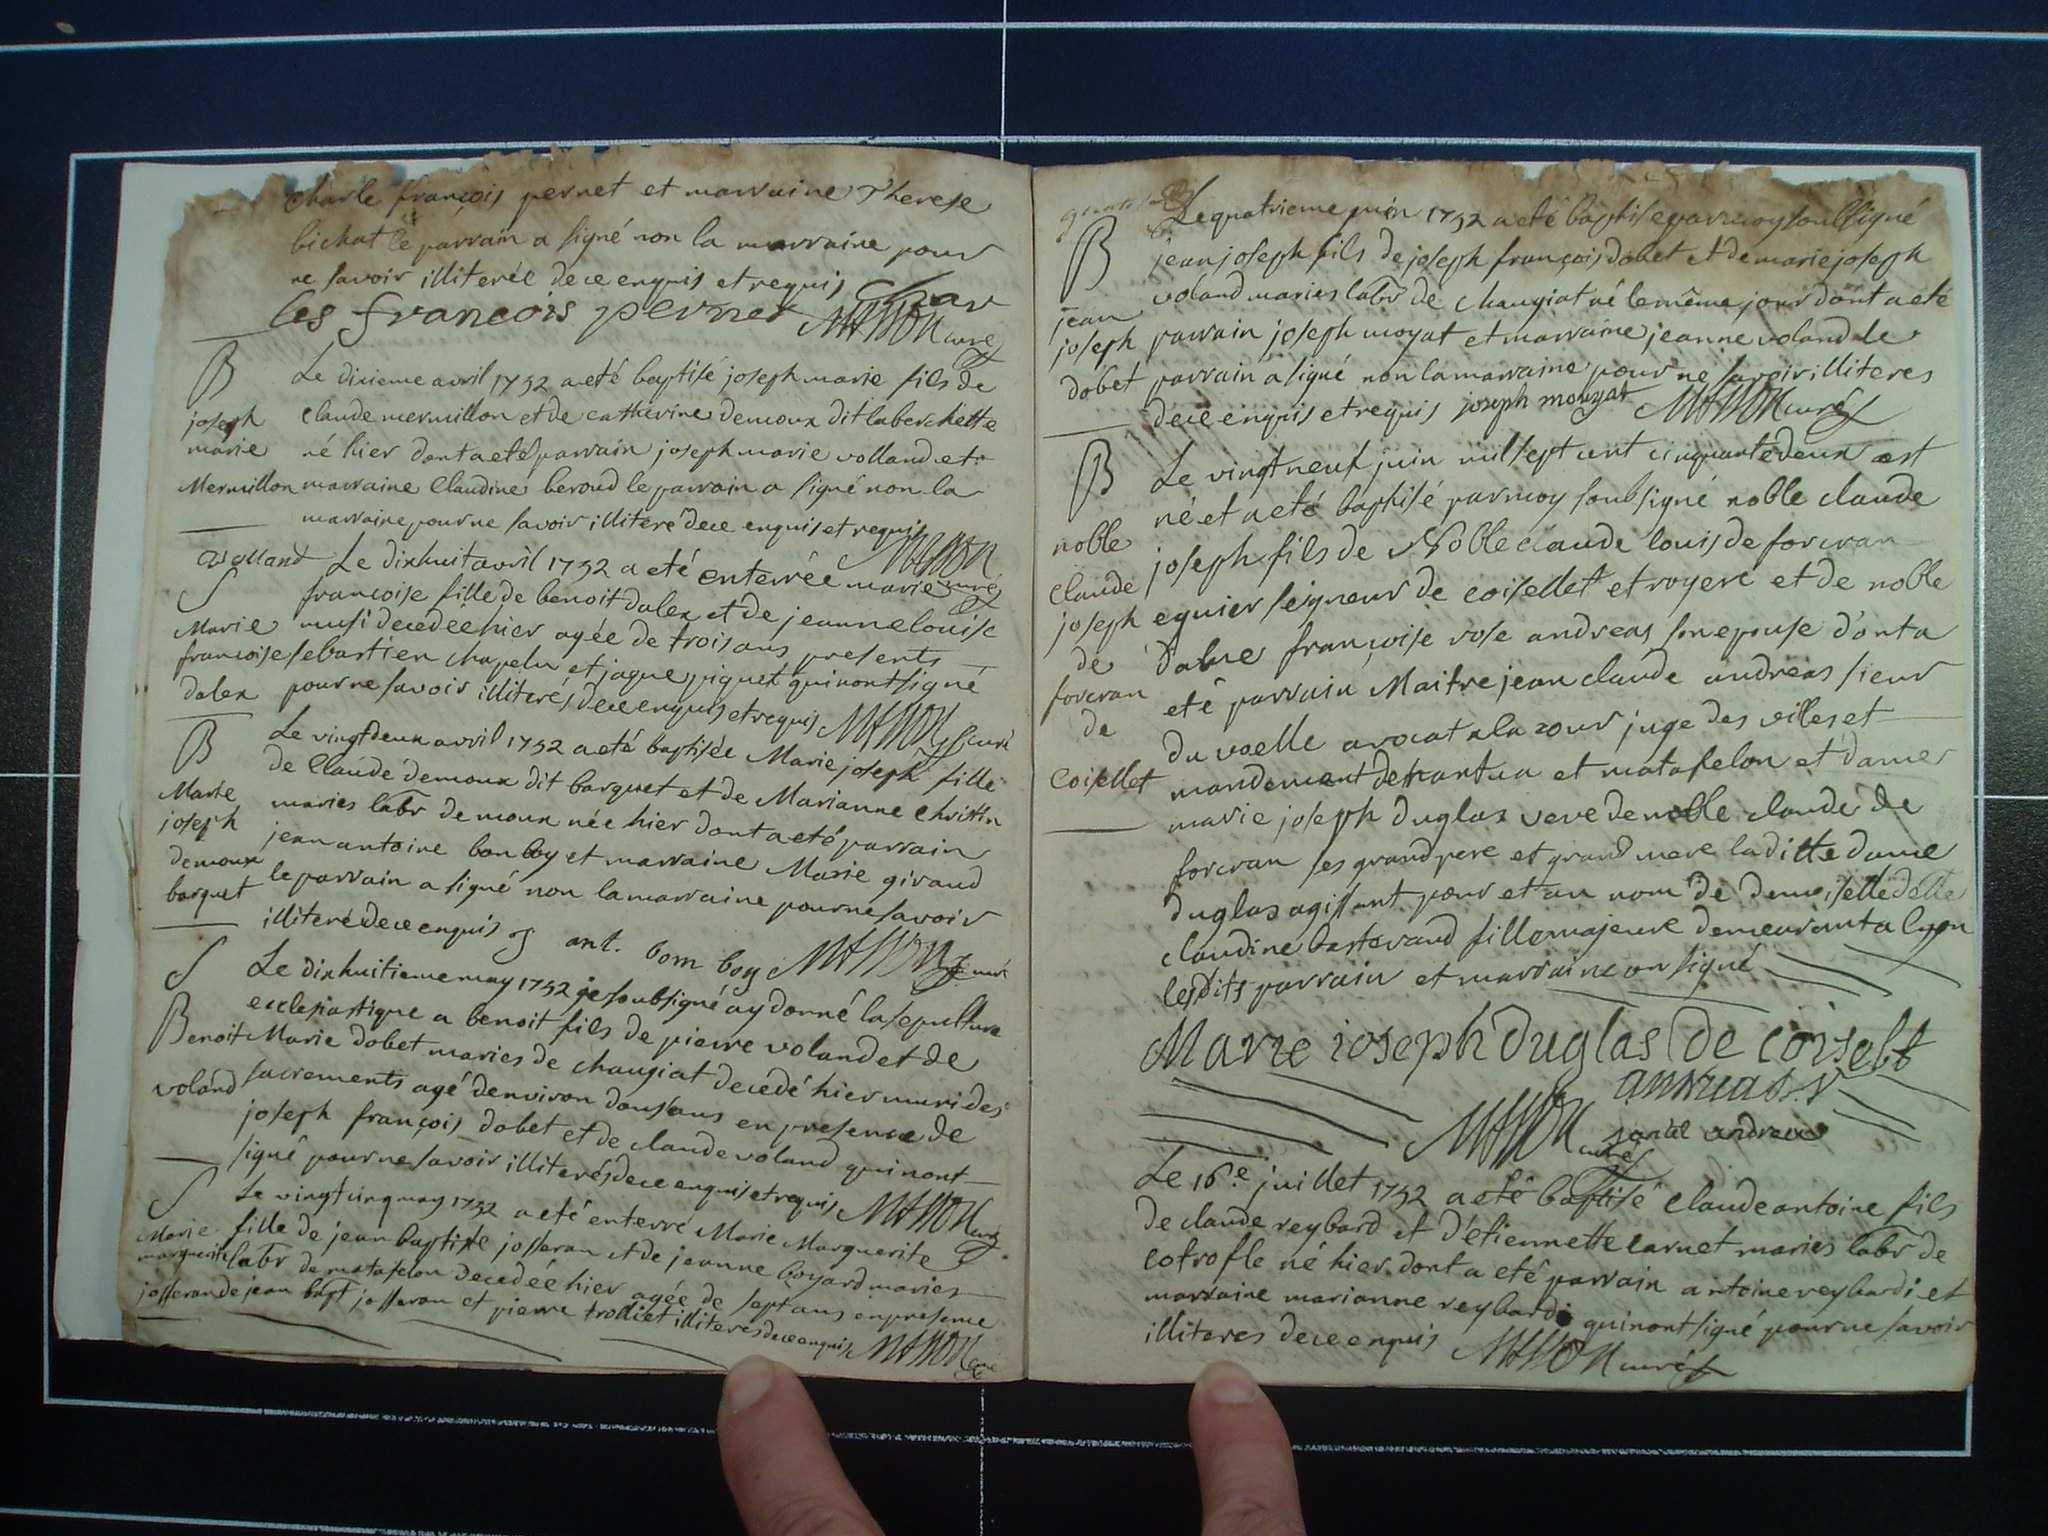 charle françois pernet et marraine Therese
bichat le parrain a signé non la marraine pour
ne savoir illiterée de ce enquis et requis Char
les francois pernet MASSON curé
B
joseph
marie
Mermillon
Le dixieme avril 1752 a eté baptisé joseph marie fils de
claude mermillon et de catherine demoux dit laberchette
né hier dont a eté parrain joseph marie volland et
marraine Claudine beroud le parrain a signé non la
marraine pour ne savoir illiteré de ce enquis et requis
volland MASSON curé
S
Marie
francoise
dalex
Le dixhuit avril 1752 a eté enterrée marie
francoise fille de benoit dalex et de jeanne louise
musi decedée hier agée de trois ans presents
sebastien chapelu et jaque piquet qui n'ont signé
pour ne savoir illiterés de ce enquis et requis MASSON curé
B
Marie
joseph
demoux
barquet
Le vingt deux avril 1752 a eté baptisée Marie joseph fille
de Claude demoux dit barquet et de Marianne Christin
maries labr de moux née hier dont a eté parrain
jean antoine bon boy et marraine Marie giraud
le parrain a signé non la marraine pour ne savoir
illiteré de ce enquis j ant. bom boy MASSON curé
S
Benoit
voland
Le dixhuitieme may 1752 je soubsigné ay donné la sepulture
ecclesiastique a benoit fils de pierre voland et de
Marie dobet maries de chaugiat decedé hier muni des
sacrements agé denviron dous ans en presence de
joseph françois dobet et de claude voland qui nont
signé pour ne savoir illiterés de ce enquis et requis MASSON curé
S
Marie
marguerite
josseran
Le vingt cinq may 1752 a eté enterré Marie Marguerite
fille de jean baptiste josseran et de jeanne boyard maries
labr de matafelon decedée hier agée de sept ans en presence
de jean bapt josseran et pierre trolliet illiteres de ce enquis MASSON curé
B
jean
joseph
dobet
Le quatrieme juin 1752 a eté baptisé par moy soubsigné
jean joseph fils de joseph françois dobet et de marie joseph
voland maries labr de chaugiat né le même jour dont a eté
parrain joseph moyat et marraine jeanne voland le
parrain a signé non la marraine pour ne savoir illiteres
de ce enquis et requis joseph mouyat MASSON curé
B
noble
claude
joseph
de
forcran
de
Coisellet
Le vingt neuf juin mil sept cent cinquante deux est
né et a eté baptisé par moy soubsigné noble claude
joseph fils de Noble claude louis de forcran
equier seigneur de coisellet et royere et de noble
dame françoise rose andreas son epouse dont a
eté parrain Maitre jean claude andreas sieur
du voelle avocat a la cour juge des villes et
mandement de nantua et matafelon et dame
marie joseph duglas veve de noble claude de
forcran ses grand pere et grand mere la ditte dame
duglas agissant pour et au nom de demoiselle
claudine basterand fille majeure demeurant a lyon
lesdits parrain et marraine on signé
Marie ioseph duglas de coiselet
andreas
MASSON curé
Le 16e juillet 1752 a eté baptisé claude antoine fils
de claude reybard et d'étiennette carnet maries labr de
cotrofle né hier dont a eté parrain antoine reybard et
marraine marianne reybard qui nont signé pour ne savoir
illiteres de ce enquis MASSON curé